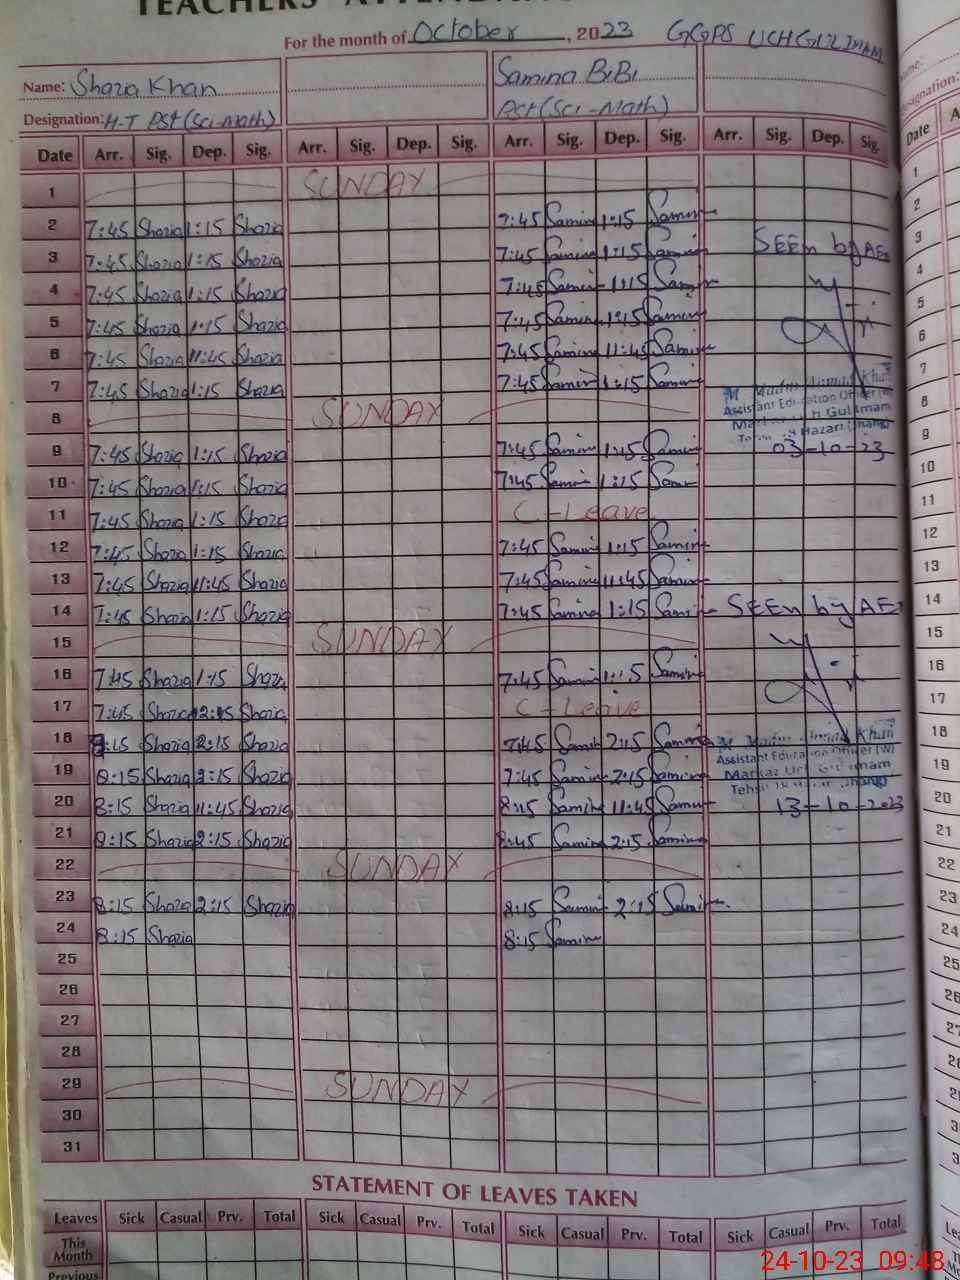 TEACHERS'
For the month of October, 2023 GGPS UCH GUL IMAM
Name: Shazia Khan Samina BiBi
Designation: H-T PST (Sci-Math) PST (Sci-Math)
Date Arr. Sig. Dep. Sig. Arr. Sig. Dep. Sig. Arr. Sig. Dep. Sig. Arr. Sig. Dep. Sig.
1 SUNDAY
2 7:45 Shazia 1:15 Shazia 7:45 Samina 1:15 Samina
3 7:45 Shazia 1:15 Shazia 7:45 Samina 1:15 Samina SEEN by AEO
4 7:45 Shazia 1:15 Shazia 7:45 Samina 1:15 Samina
5 7:45 Shazia 1:15 Shazia 7:45 Samina 1:15 Samina
6 7:45 Shazia 11:45 Shazia 7:45 Samina 11:45 Samina
7 7:45 Shazia 1:15 Shazia 7:45 Samina 1:15 Samina
8 SUNDAY Assistant Education Officer (W)
9 7:45 Shazia 1:15 Shazia 7:45 Samina 1:15 Samina 03-10-23
10 7:45 Shazia 1:15 Shazia 7:45 Samina 1:15 Samina
11 7:45 Shazia 1:15 Shazia C-Leave
12 7:45 Shazia 1:15 Shazia 7:45 Samina 1:15 Samina
13 7:45 Shazia 11:45 Shazia 7:45 Samina 11:45 Samina
14 7:45 Shazia 1:15 Shazia 7:45 Samina 1:15 Samina SEEN by AEO
15 SUNDAY
16 7:45 Shazia 1:15 Shazia 7:45 Samina 1:15 Samina
17 7:45 Shazia 2:15 Shazia C-Leave
18 8:15 Shazia 2:15 Shazia 7:45 Samina 2:15 Samina Khan
19 8:15 Shazia 2:15 Shazia 7:45 Samina 2:15 Samina Assistant Education Officer (W)
20 8:15 Shazia 11:45 Shazia 8:15 Samina 11:45 Samina 13-10-2023
21 8:15 Shazia 2:15 Shazia 8:45 Samina 2:15 Samina
22 SUNDAY
23 8:15 Shazia 2:15 Shazia 8:15 Samina 2:15 Samina
24 8:15 Shazia 8:15 Samina
25
26
27
28
29 SUNDAY
30
31
STATEMENT OF LEAVES TAKEN
Leaves Sick Casual Prv. Total Sick Casual Prv. Total Sick Casual Prv. Total Sick Casual Prv. Total
This Month
Previous
24-10-23 09:48